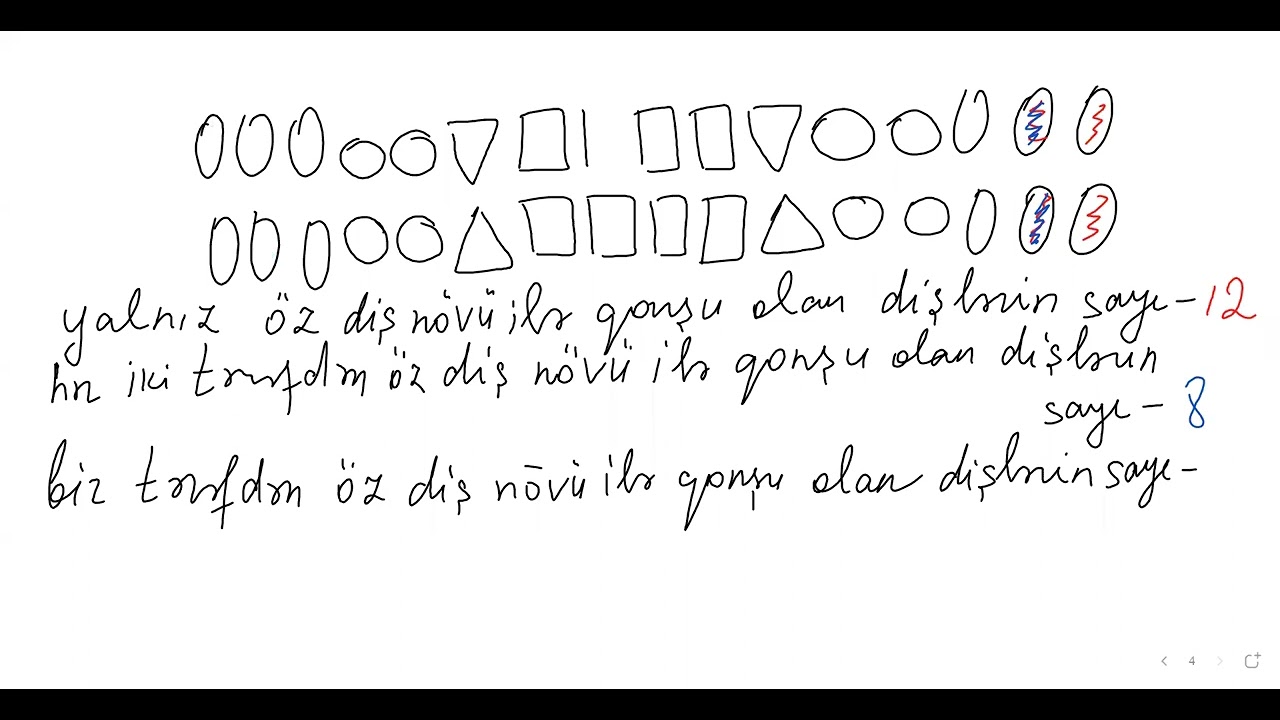 yalnız öz diş növü ilə qonşu olan dişlərin sayı - 12
hər iki tərəfdən öz diş növü ilə qonşu olan dişlərin
sayı - 8
bir tərəfdən öz diş növü ilə qonşu olan dişlərin sayı -
4